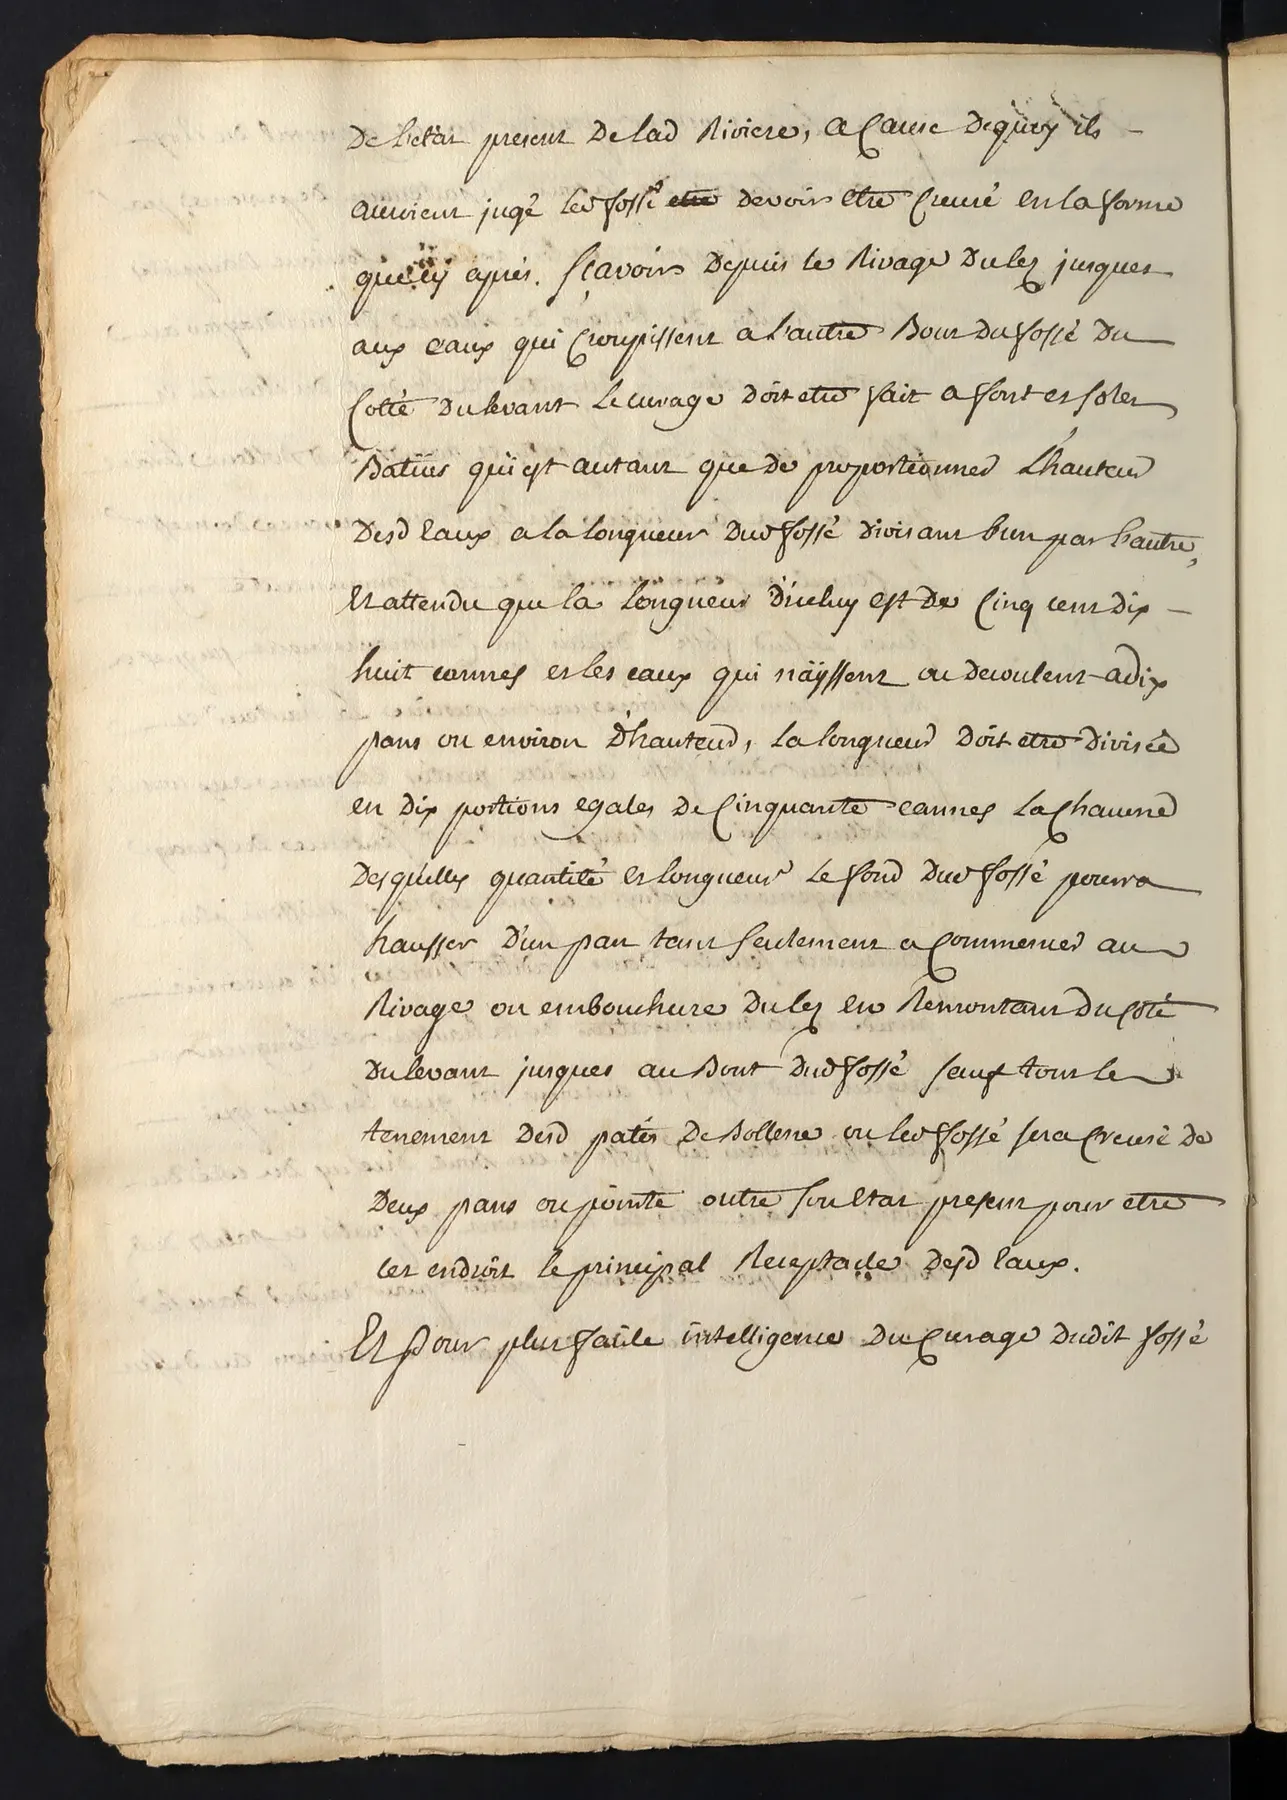 De l'etat present De lad Riviere, a Cause Dequoy ils
auroient jugé led fossé etre devoir etre Creusé en la forme
que cy aprés. Sçavoir Depuis le Rivage Du lez jusques
aux eaux qui Croupissent a l'autre Bout Du fossé Du
Cotté Du levant Le curage Doit etre fait a font et soles
Baties qui est autant que de proportionner L'hauteur
Desd Eaux a la longueur Dud fossé Divisant l'un par l'autre,
Et attendu que la longueur D'icluy est De Cinq cent Dix
huit cannes et les eaux qui naissent ou decoulent a dix
pans ou environ D'hauteur, La longueur Doit etre Divisée
en Dix portions egales De Cinquante cannes La Chacune
Desquelles quantité et longueur Le fond Dud fossé pourra
hausser D'un pan tant seulement a Commencer au
Rivage ou embouchure Du lez en Remontant Du Coté
Du levant jusques au Bout Dud fossé sauf tout le
tenement Desd patis De Bollene ou led fossé sera Creusé de
Deux pans ou pointe outre son Etat present pour etre
cet endroit le principal Receptacle Desd Eaux.
Et Pour plus facile intelligence Du Curage Dudit fossé